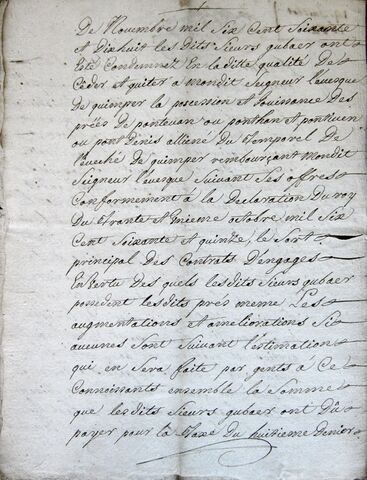 De Novembre mil Six Cent Soixante
et Dixhuit les dits Sieurs gubaer ont
Eté Condemnez En la dite qualité De
Ceder et quiter a mondit Seigneur l'evesque
de quimper la pocession et Jouissance Des
prées de pontevan ou ponthan et pontiven
ou pont Denis alliené Du temporel De
l'eveché De quimper remboursant Mondit
Seigneur l'evesque Suivant Ses offres
Conformement à la Declaration Du roy
Du trante et Onieme octobre mil Six
Cent Soixante et quinze, le Sort
principal Des Contrats D'engages
En Vertu Des quels les dits Sieurs gubaer
possedent les dits prés meme Les
augmentations et ameliorations Si
aucunes Sont Suivant l'estimation
qui en Sera faite par gents à Ce
Connoissants ensemble la Somme
que les dits Sieurs gubaer ont Dû
payer pour la taxe Du huitieme Denier